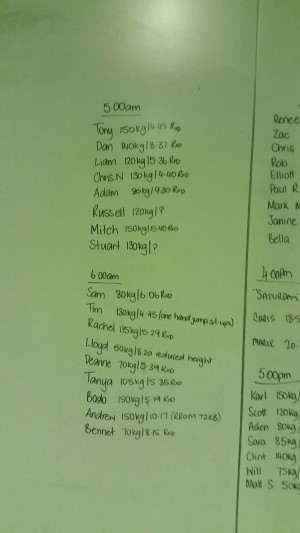 5:00am
Tony 150kg/4.45 RxD
Dan 140kg/8.37 RxD
Liam 120kg/5.36 RxD
Chris.N 130kg/4.40 RxD
Adam 80kg/9.30 RxD
Russell 120kg/?
Mitch 150kg/5.40 RxD
Stuart 130kg/?
6:00am
Sam 80kg/6.06 RxD
Tim 130kg/4.45 (one hand jump sit-ups)
Rachel 115kg/5.29 RxD
Lloyd 50kg/8.20 reduced height
Deanne 70kg/5.39 RxD
Tanya 105kg/5.35 RxD
Bodo 150kg/5.19 RxD
Andrew 150kg/10.17 (RROM 72KB)
Bennet 70kg/8.15 RxD
Renee
Zac
Chris
Rob
Elliott
Paul R
Mark
Janine
Bella
4:00pm
"SATURDAY
CHRIS 185
MARIE 70
5:00pm
Karl 150kg/
Scott 120kg
Aden 80kg/
Sara 85kg/
Clint 140kg
Will 75kg/
Matt S 50k